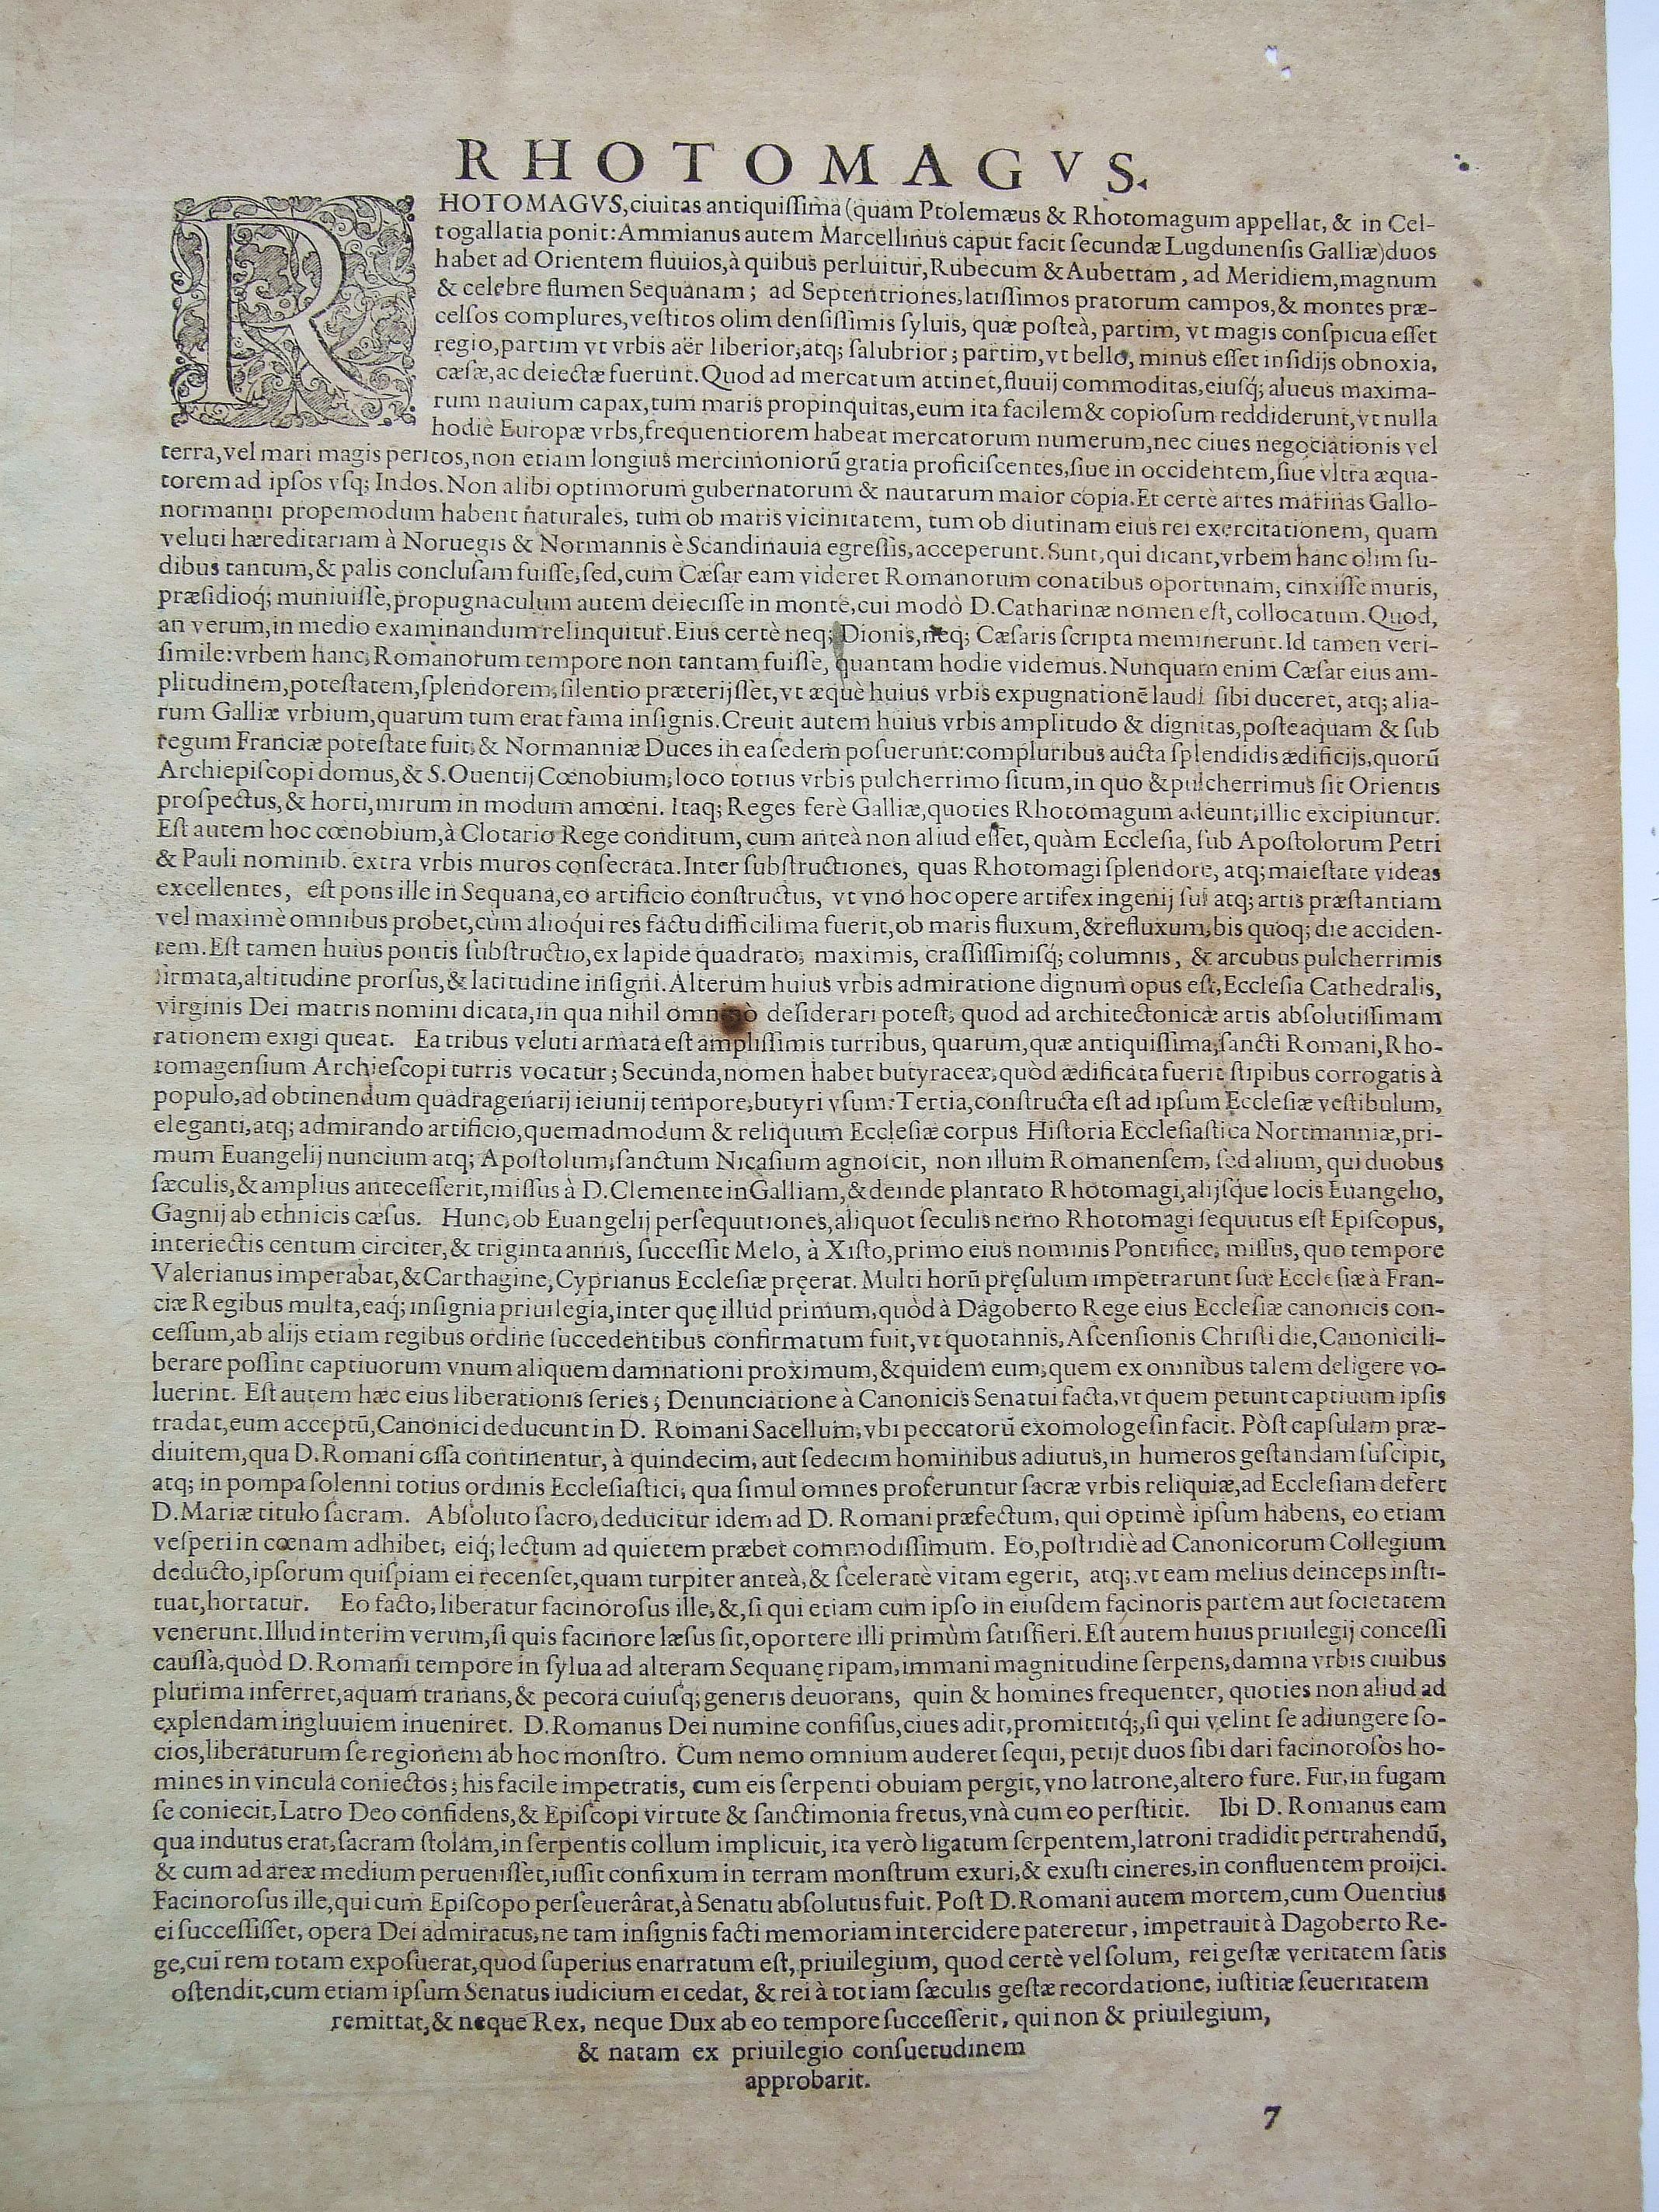 RHOTOMAGVS.
RHOTOMAGVS, ciuitas antiquiſſima (quam Ptolemæus & Rhotomagum appellat, & in Cel-
togallatia ponit: Ammianus autem Marcellinus caput facit ſecundæ Lugdunenſis Galliæ) duos
habet ad Orientem fluuios, à quibus perluitur, Rubecum & Aubettam, ad Meridiem, magnum
& celebre flumen Sequanam; ad Septentriones, latiſſimos pratorum campos, & montes præ-
celſos complures, veſtitos olim denſiſſimis ſyluis, quæ poſteà, partim, vt magis conſpicua eſſet
regio, partim vt vrbis aër liberior, atq; ſalubrior; partim, vt bello, minus eſſet inſidijs obnoxia,
cæſæ, ac deiectæ fuerunt. Quod ad mercatum attinet, fluuij commoditas, eiuſq́; alueus maxima-
rum nauium capax, tum maris propinquitas, eum ita facilem & copioſum reddiderunt, vt nulla
hodie Europæ vrbs, frequentiorem habeat mercatorum numerum, nec ciues negociationis vel
terra, vel mari magis peritos, non etiam longius mercimoniorū gratia proficiſcentes, ſiue in occidentem, ſiue vltra æqua-
torem ad ipſos vſq; Indos. Non alibi optimorum gubernatorum & nautarum maior copia. Et certè artes marinas Gallo-
normanni propemodum habent naturales, tum ob maris vicinitatem, tum ob diutinam eius rei exercitationem, quam
veluti hæreditariam à Noruegis & Normannis è Scandinauia egreſſis, acceperunt. Sunt, qui dicant, vrbem hanc olim ſu-
dibus tantum, & palis concluſam fuiſſe, ſed, cum Cæſar eam videret Romanorum conatibus oportunam, cinxiſſe muris,
præſidioq́; muniuiſſe, propugnaculum autem deieciſſe in monte, cui modò D. Catharinæ nomen eſt, collocatum. Quod,
an verum, in medio examinandum relinquitur. Eius certè neq; Dionis, neq; Cæſaris ſcripta meminerunt. Id tamen veri-
ſimile: vrbem hanc, Romanorum tempore non tantam fuiſſe, quantam hodie videmus. Nunquam enim Cæſar eius am-
plitudinem, poteſtatem, ſplendorem, ſilentio præterijſſet, vt æquè huius vrbis expugnationē laudi ſibi duceret, atq; alia-
rum Galliæ vrbium, quarum tum erat fama inſignis. Creuit autem huius vrbis amplitudo & dignitas, poſteaquam & ſub
regum Franciæ poteſtate fuit, & Normanniæ Duces in ea ſedem poſuerunt: compluribus aucta ſplendidis ædificijs, quorū
Archiepiſcopi domus, & S. Ouentij Cœnobium, loco totius vrbis pulcherrimo ſitum, in quo & pulcherrimus ſit Orientis
proſpectus, & horti, mirum in modum amœni. Itaq; Reges ferè Galliæ, quoties Rhotomagum adeunt, illic excipiuntur.
Eſt autem hoc cœnobium, à Clotario Rege conditum, cum anteà non aliud eſſet, quàm Eccleſia, ſub Apoſtolorum Petri
& Pauli nominib. extra vrbis muros conſecrata. Inter ſubſtructiones, quas Rhotomagi ſplendore, atq; maieſtate videas
excellentes, eſt pons ille in Sequana, eo artificio conſtructus, vt vno hoc opere artifex ingenij ſui atq; artis præſtantiam
vel maximè omnibus probet, cùm alioq́ui res factu difficilima fuerit, ob maris fluxum, & refluxum, bis quoq; die acciden-
tem. Eſt tamen huius pontis ſubſtructio, ex lapide quadrato, maximis, craſſiſſimiſq́; columnis, & arcubus pulcherrimis
firmata, altitudine prorſus, & latitudine inſigni. Alterum huius vrbis admiratione dignum opus eſt, Eccleſia Cathedralis,
virginis Dei matris nomini dicata, in qua nihil omninò deſiderari poteſt, quod ad architectonicæ artis abſolutiſſimam
rationem exigi queat. Ea tribus veluti armata eſt ampliſſimis turribus, quarum, quæ antiquiſſima, ſancti Romani, Rho-
tomagenſium Archieſcopi turris vocatur; Secunda, nomen habet butyraceæ, quòd ædificata fuerit ſtipibus corrogatis à
populo, ad obtinendum quadragenarij ieiunij tempore, butyri vſum: Tertia, conſtructa eſt ad ipſum Eccleſiæ veſtibulum,
eleganti, atq; admirando artificio, quemadmodum & reliquum Eccleſiæ corpus Hiſtoria Eccleſiaſtica Nortmanniæ, pri-
mum Euangelij nuncium atq; Apoſtolum, ſanctum Nicaſium agnoſcit, non illum Romanenſem, ſed alium, qui duobus
ſæculis, & amplius anteceſſerit, miſſus à D. Clemente in Galliam, & deinde plantato Rhotomagi, alijſq́ue locis Euangelio,
Gagnij ab ethnicis cæſus. Hunc, ob Euangelij perſequutiones, aliquot ſeculis nemo Rhotomagi ſequutus eſt Epiſcopus,
interiectis centum circiter, & triginta annis, ſucceſſit Melo, à Xiſto, primo eius nominis Pontifice, miſſus, quo tempore
Valerianus imperabat, & Carthagine, Cyprianus Eccleſiæ pręerat. Multi horū pręſulum impetrarunt ſuæ Eccleſiæ à Fran-
ciæ Regibus multa, eaq́; inſignia priuilegia, inter quę illud primum, quòd à Dagoberto Rege eius Eccleſiæ canonicis con-
ceſſum, ab alijs etiam regibus ordine ſuccedentibus confirmatum fuit, vt quotannis, Aſcenſionis Chriſti die, Canonici li-
berare poſſint captiuorum vnum aliquem damnationi proximum, & quidem eum, quem ex omnibus talem deligere vo-
luerint. Eſt autem hæc eius liberationis ſeries; Denunciatione à Canonicis Senatui facta, vt quem petunt captiuum ipſis
tradat, eum acceptū, Canonici deducunt in D. Romani Sacellum, vbi peccatorū exomologeſin facit. Pòſt capſulam præ-
diuitem, qua D. Romani oſſa continentur, à quindecim, aut ſedecim hominibus adiutus, in humeros geſtandam ſuſcipit,
atq; in pompa ſolenni totius ordinis Eccleſiaſtici, qua ſimul omnes proferuntur ſacræ vrbis reliquiæ, ad Eccleſiam defert
D. Mariæ titulo ſacram. Abſoluto ſacro, deducitur idem ad D. Romani præfectum, qui optimè ipſum habens, eo etiam
veſperi in cœnam adhibet, eiq́; lectum ad quietem præbet commodiſſimum. Eo, poſtridiè ad Canonicorum Collegium
deducto, ipſorum quiſpiam ei recenſet, quam turpiter anteà, & ſceleratè vitam egerit, atq; vt eam melius deinceps inſti-
tuat, hortatur. Eo facto, liberatur facinoroſus ille, &, ſi qui etiam cum ipſo in eiuſdem facinoris partem aut ſocietatem
venerunt. Illud interim verum, ſi quis facinore læſus ſit, oportere illi primùm ſatisfieri. Eſt autem huius priuilegij conceſſi
cauſſa, quòd D. Romani tempore in ſylua ad alteram Sequanę ripam, immani magnitudine ſerpens, damna vrbis ciuibus
plurima inferret, aquam tranans, & pecora cuiuſq; generis deuorans, quin & homines frequenter, quoties non aliud ad
explendam ingluuiem inueniret. D. Romanus Dei numine confiſus, ciues adit, promittitq́;, ſi qui velint ſe adiungere ſo-
cios, liberaturum ſe regionem ab hoc monſtro. Cum nemo omnium auderet ſequi, petijt duos ſibi dari facinoroſos ho-
mines in vincula coniectos; his facile impetratis, cum eis ſerpenti obuiam pergit, vno latrone, altero fure. Fur, in fugam
ſe coniecit, Latro Deo confidens, & Epiſcopi virtute & ſanctimonia fretus, vnà cum eo perſtitit. Ibi D. Romanus eam
qua indutus erat, ſacram ſtolam, in ſerpentis collum implicuit, ita verò ligatum ſerpentem, latroni tradidit pertrahendū,
& cum ad areæ medium perueniſſet, iuſſit confixum in terram monſtrum exuri, & exuſti cineres, in confluentem proijci.
Facinoroſus ille, qui cum Epiſcopo perſeuerârat, à Senatu abſolutus fuit. Poſt D. Romani autem mortem, cum Ouentius
ei ſucceſſiſſet, opera Dei admiratus, ne tam inſignis facti memoriam intercidere pateretur, impetrauit à Dagoberto Re-
ge, cui rem totam expoſuerat, quod ſuperius enarratum eſt, priuilegium, quod certè vel ſolum, rei geſtæ veritatem ſatis
oſtendit, cum etiam ipſum Senatus iudicium ei cedat, & rei à tot iam ſæculis geſtæ recordatione, iuſtitiæ ſeueritatem
remittat, & neque Rex, neque Dux ab eo tempore ſucceſſerit, qui non & priuilegium,
& natam ex priuilegio conſuetudinem
approbarit.
7